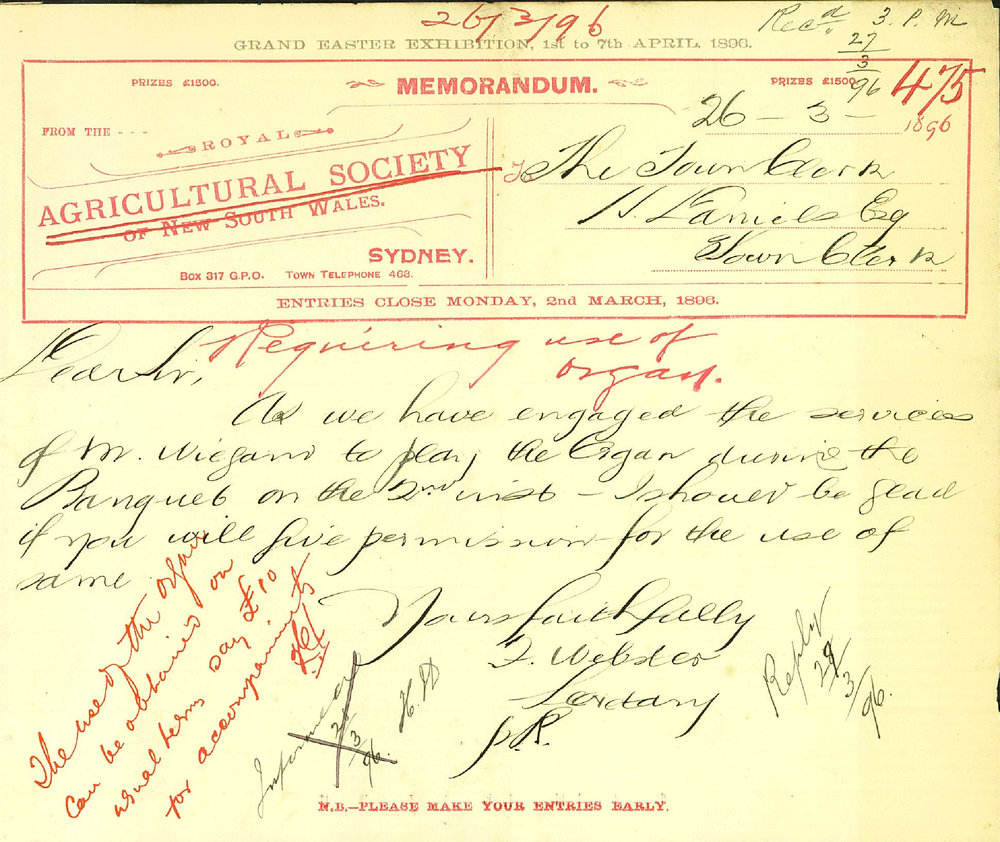 26/3/96
Recd. 3. P. M
27
3
96
GRAND EASTER EXHIBITION, 1st to 7th APRIL, 1896.
475
PRIZES £1500.
MEMORANDUM.
PRIZES £1500.
26 - 3 - 1896
FROM THE - - -
ROYAL
AGRICULTURAL SOCIETY
OF NEW SOUTH WALES.
SYDNEY.
BOX 317 G.P.O. TOWN TELEPHONE 468.
To The Town Clerk
H. Daniels Esq
Town Clerk
ENTRIES CLOSE MONDAY, 2nd MARCH, 1896.
Requiring use of
organ.
Dear Sir,
As we have engaged the services
of M. Wiegand to play the Organ during the
Banquet on the 2nd inst - I should be glad
if you will give permission for the use of
same
Yours faithfully
F. Webster
Secretary
p.R.
The use of the organ
can be obtained on
usual terms say £10
for accompaniments
Informed
28
3
96
H.D
Reply
28/3/96.
N.B.—PLEASE MAKE YOUR ENTRIES EARLY.